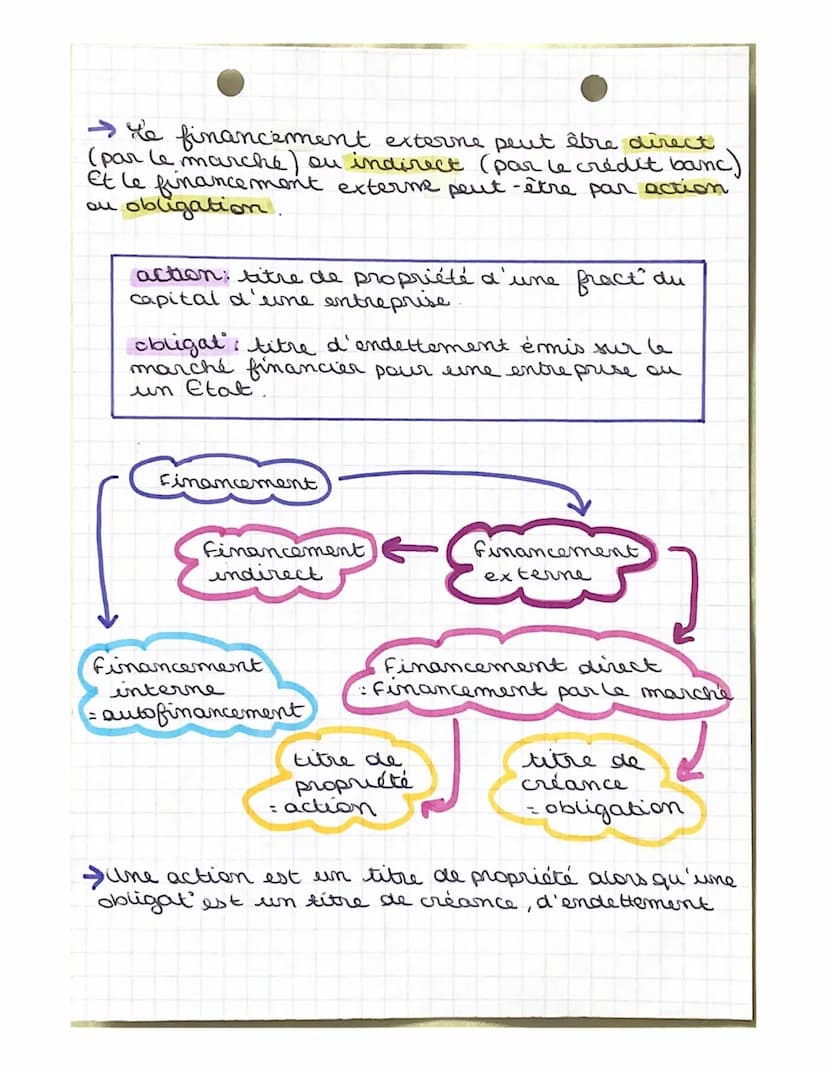 → Le financement externe peut être direct
(par le marché) ou indirect (par le crédit banc)
Et le financement externe peut-être par action
ou obligation.
action: titre de propriété d'une fract° du
capital d'une entreprise.
obligat°: titre d'endettement émis sur le
marché financier pour une entreprise ou
un Etat.
Financement
Financement
indirect
Financement
externe
Financement
interne
= autofinancement
Financement direct
= Financement par le marché
titre de
propriété
= action
titre de
créance
= obligation
→ Une action est un titre de propriété alors qu'une
obligat° est un titre de créance, d'endettement